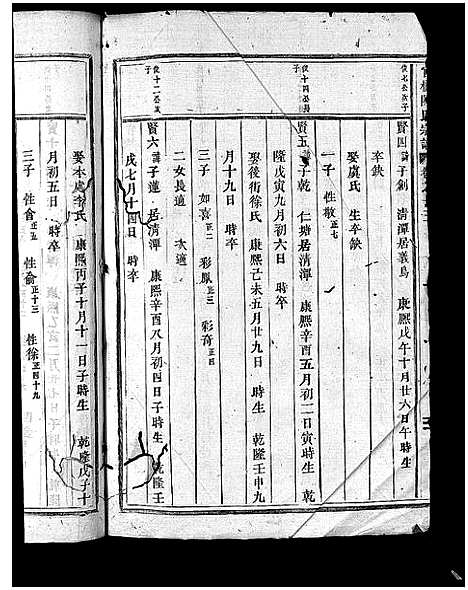 俊七公次子
賢四 諱子劍 清潭居義烏 康熙戊午十月廿六日午時生
卒缺
娶虞氏 生卒缺
一子 性敬正七
俊十四公長子
賢五 諱子乾 仁塘居清潭 康熙辛酉五月初二日寅時生 乾
隆戊寅九月初六日 時卒
娶後衖徐氏 康熙己未五月廿九日 時生 乾隆壬申九
月十九日 時卒
三子 如喜正二 彩鳳正三 彩奇正四
二女長適 次適
俊十二公次子
賢六 諱子蓮 居清潭 康熙辛酉八月初四日子時生 乾隆壬
戌七月十四日 時卒
娶本處李氏 康熙丙子十月十一日子時生 乾隆戊子十
月初五日 時卒
三子 性會正五 性俞正十三 性徐正四十九